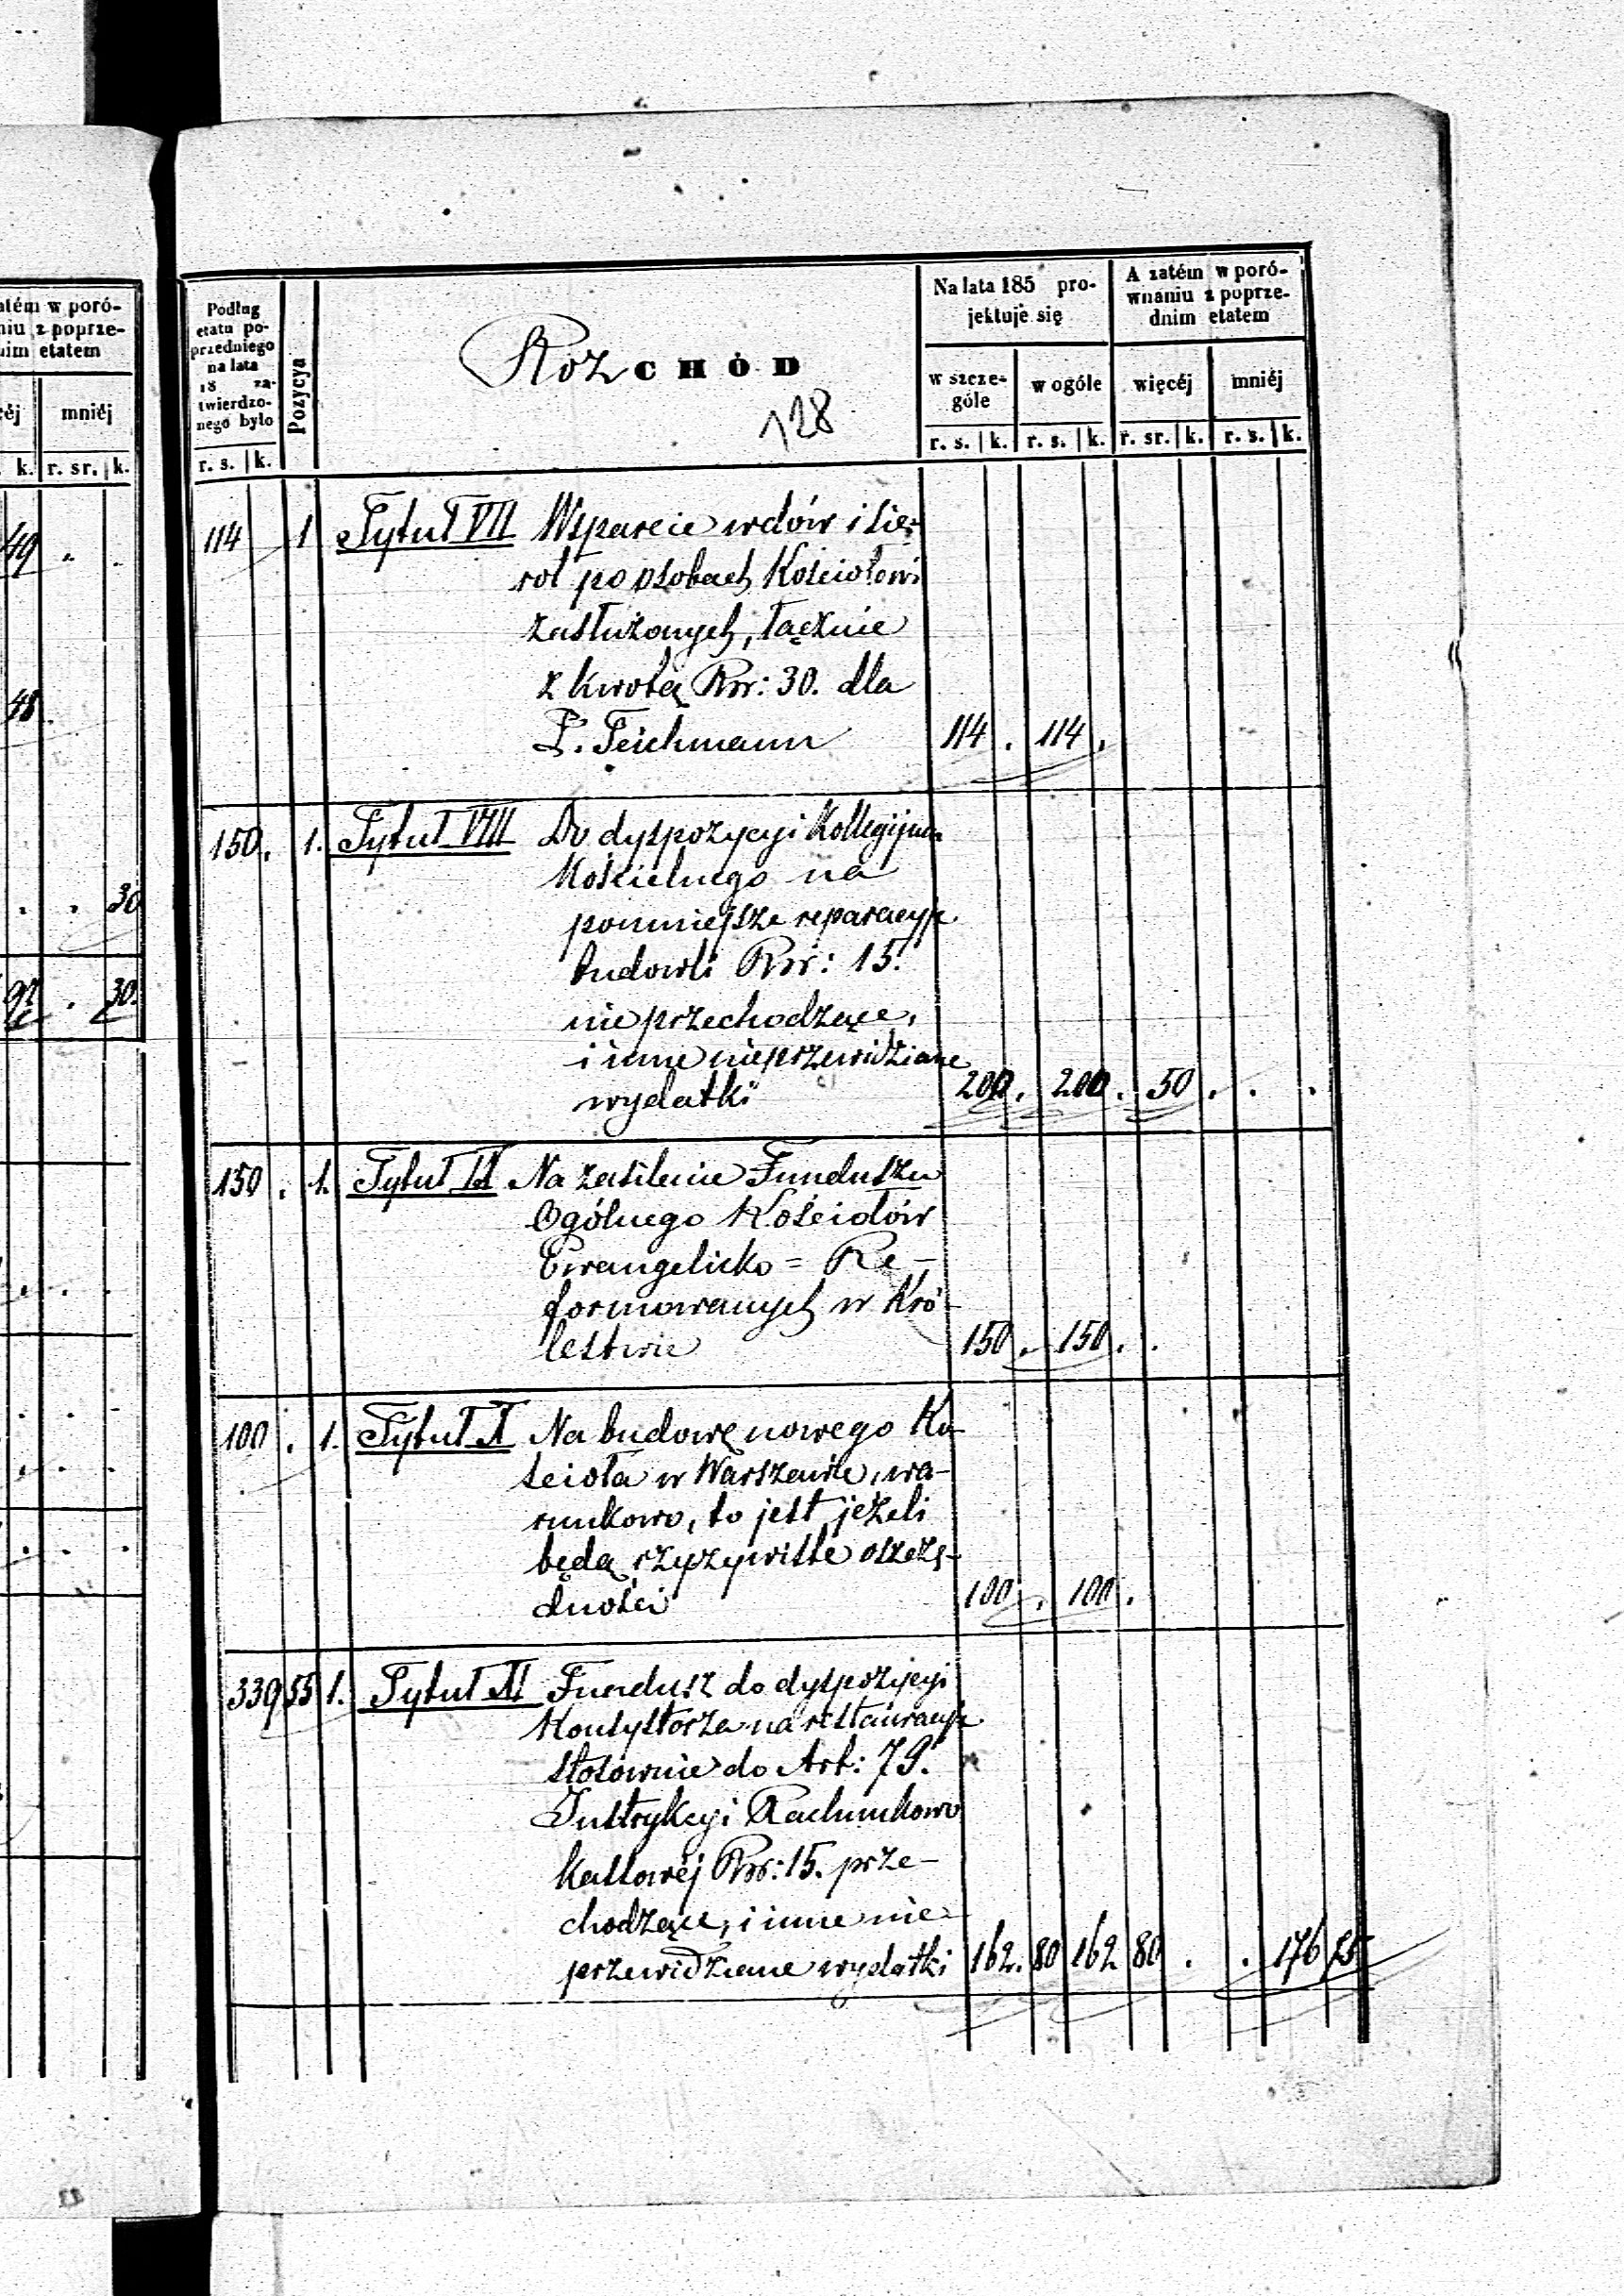 atém w poró-
niu z poprze-
nim etatem
éj mniéj
k. r. sr. k.
49
48
30
30.
Podług
etatu po-
przedniego
na lata
18 za-
twierdzo-
nego było
r. s. k.
Pozycya
RozCHÓD
128
Na lata 185 pro-
jektuje się
w szcze-
góle
w ogóle
r. s. k. r. s. k.
A zatém w poró-
wnaniu z poprze-
dnim etatem
więcéj mniéj
r. sr. k. r. s. k.
114 1 Tytuł VII Wsparcie wdów i sie-
rot po osobach Kościołowi
zasłużonych, łącznie
z kwotą Rsr: 30. dla
P. Teichmann 114 . 114 .
150. 1. Tytuł VIII Do dyspozycyi Kollegijum
Kościelnego na
pomniejsze reparacyje
budowli Rsr: 15.
nie przechodzące,
i inne nieprzewidziane
wydatki 200. 200. 50 . . .
150 . 1. Tytuł IX Na zasilenie Funduszu
Ogólnego Kościołów
Ewangelicko = Re-
formowanych w Kró-
lestwie 150 . 150 . .
100 . 1. Tytuł X Na budowę nowego Ko-
ścioła w Warszawie, wa-
runkowo, to jest jeżeli
będą rzyzywiste oszczę-
dności 100 . 100 .
339 55 1. Tytuł XI Fundusz do dyspozycyi
Konsystorza na restauracyje
stosownie do Art: 79.
Instrykcyi Rachunkowo
kassowéj Rsr: 15. prze-
chodzące, i inne nie-
przewidziane wydatki 162. 80 162 80 . . 176 75